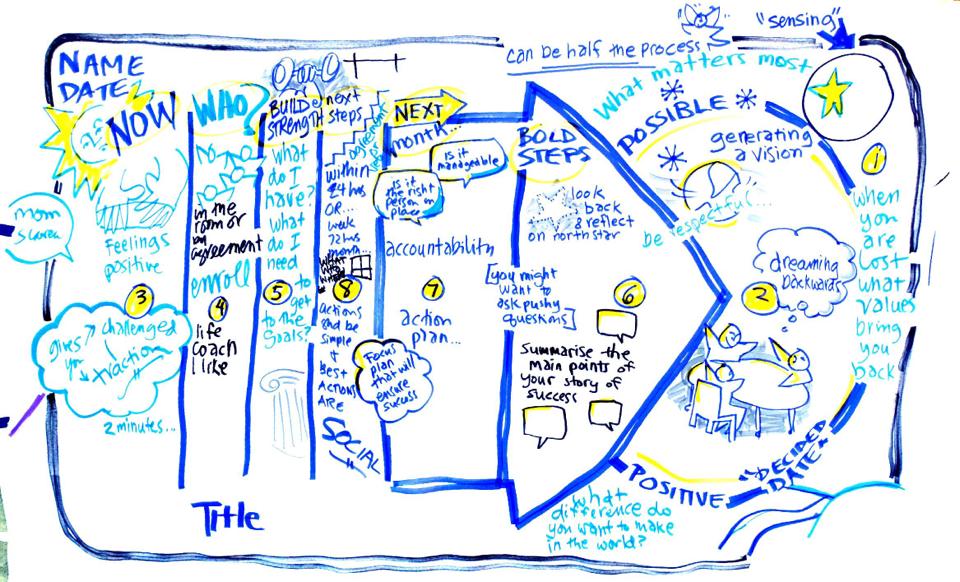 NAME
DATE
NOW
Feelings
positive
3
gives
you
challenged
traction
2 minutes...
mom
WHO?
in the
room or
by
agreement
enroll
4
life
coach
like
BUILD
STRENGTH
what
do I
have?
what
do I
need
to
5
get
to the
goals?
& next
steps
agreements
within
24 hrs
OR...
week
72 hrs
month...
WHAT
WHO
WHEN
8
actions
shd be
simple
&
Best
Actions
ARE
SOCIAL
NEXT
month...
Is it
manageable
Is it
the right
person in
place
accountability
7
action
plan...
Focus
plan
that will
ensure
success
BOLD
STEPS
look
back
& reflect
on north star
[you might
want to
ask pushy
questions]
6
Summarise the
main points of
your story of
success
can be half the process
"sensing"
What matters most
POSSIBLE
generating
a vision
be respectful...
dreaming
backwards
2
1
when
you
are
lost
what
values
bring
you
back
"DECIDED
DATE"
POSITIVE
what
difference do
you want to make
in the world?
Title